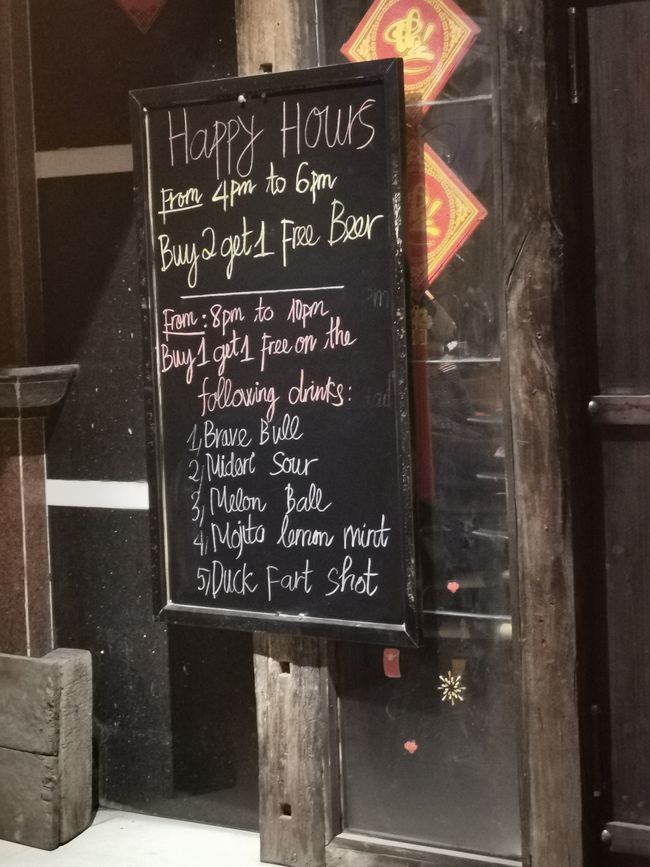 Happy Hours
From 4pm to 6pm
Buy 2 get 1 Free Beer
From: 8pm to 10pm
Buy 1 get 1 Free on the
following drinks:
1, Brave Bull
2, Midori Sour
3, Melon Ball
4, Mojito lemon mint
5, Duck Fart Shot